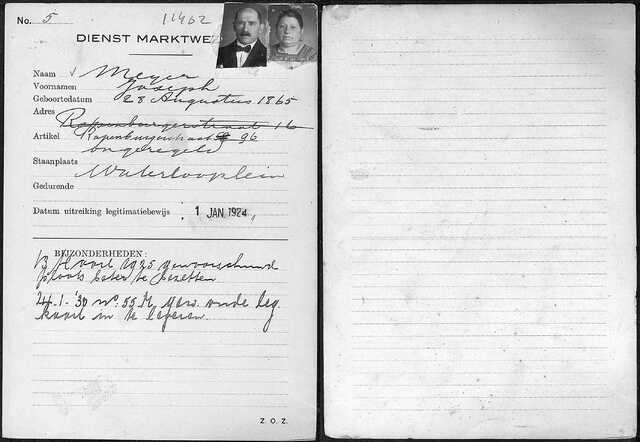 No. 5
11462
DIENST MARKTWE
Naam Meyer
Voornamen Joseph
Geboortedatum 28 Augustus 1865
Adres Rapenburgerstraat 16
Rapenburgerstraat 96
Artikel ongeregeld
Staanplaats Waterlooplein
Gedurende
Datum uitreiking legitimatiebewijs 1 JAN 1924
BIJZONDERHEDEN:
13 Maart 1925 gewaarschuwd
plaats beter te bezetten
24-1-'30 no. 55 M. gew. oude leg.
kaart in te leveren
Z. O. Z.